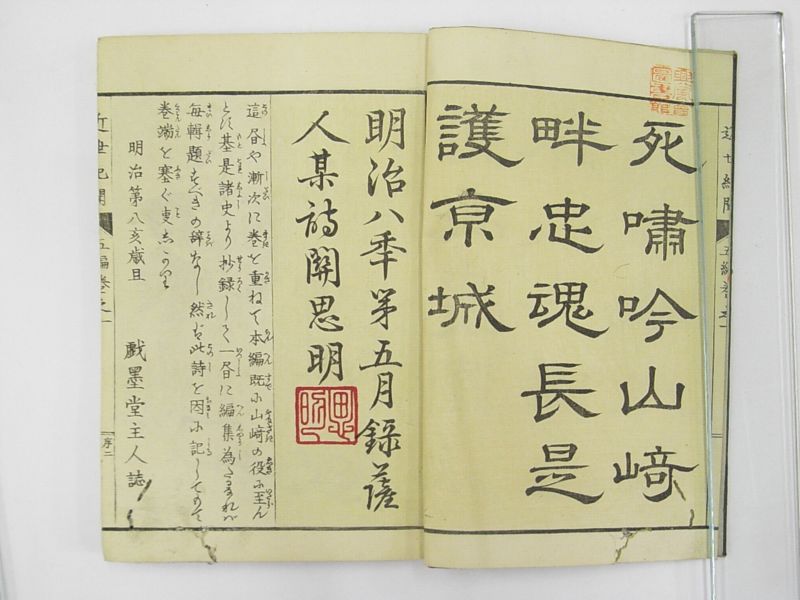 死嘯吟山﨑
畔忠魂長是
護京城
明治八季第五月錄薩
人某詩関思明
思明
這昏や漸次に巻を重ねて本編既に山﨑の役に至ん
とす基是諸史より抄録して一昏に編集為たるなれバ
毎輯題すべきの辞なし然ども此詩を因に記して
巻端を塞ぐ
明治第八亥歳旦
戯墨堂主人誌
近世紀聞
五編巻之一
序二